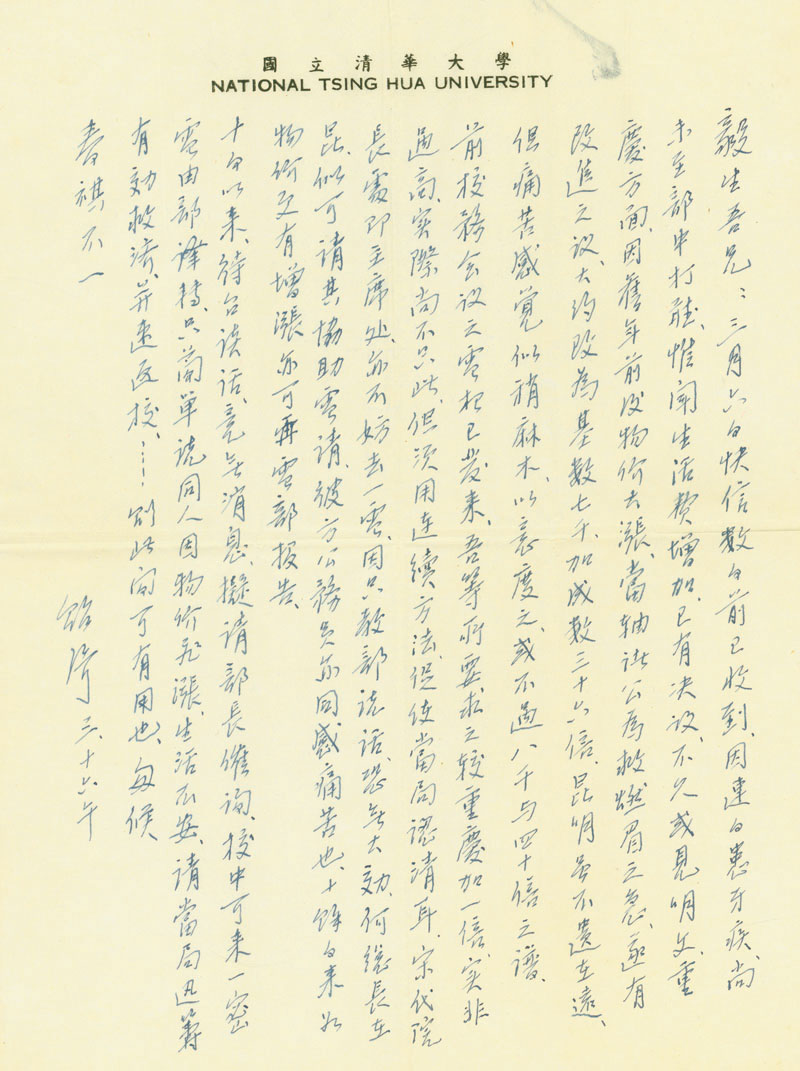 國立清華大學
NATIONAL TSING HUA UNIVERSITY
毅生吾兄：三月六日快信數日前已收到、因連日患牙疾、尚
未至部中打聽、惟聞生活費增加、已有决议、不久或見明文、重
慶方面、因舊年前后物价大漲、當軸諸公為救燃眉之急、遂有
改進之议、大约改為基數七千、加成數三十六倍、昆明虽不遺在遠、
但痛苦感覚似稍麻木、以意度之、或不過八千与四十倍之譜、
前校務会议之電稿已發来、吾等所要求之較重慶加一倍、实非
過高、实際尚不只此、但须用連續方法、促使當局認清耳、宋代院
長處即主席处、亦不妨去一電、因只教部说话、恐无大効、何總長在
昆、似可請其協助電請、彼方公務员亦同感痛苦也、十餘日来如
物价更有增漲亦可再電部報告、
十日以来、待召谈话、竟无消息、擬請部長催詢、校中可来一密
電由部譯轉、只简單说同人因物价飛漲、生活不安、請當局迅籌
有効救濟、并速返校、……则此间可有用也、匆候
春祺不一
貽琦 三、十六午